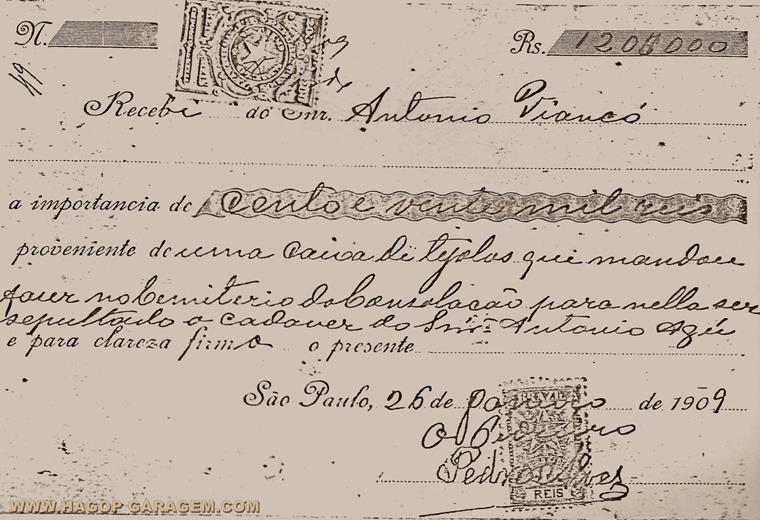 N.
Rs. 120$000
Recebi do Snr. Antonio Piancó
a importancia de Cento e vente mil reis
proveniente de uma Caixa di tijolos que mandou
fazer no Cemiterio da Consolação para nella ser
sepultado o cadaver do Snr. Antonio
e para clareza firmo o presente
São Paulo, 26 de Janeiro de 1909
O
Pedro Alves
REIS
WWW.HAGOP GARAGEM.COM